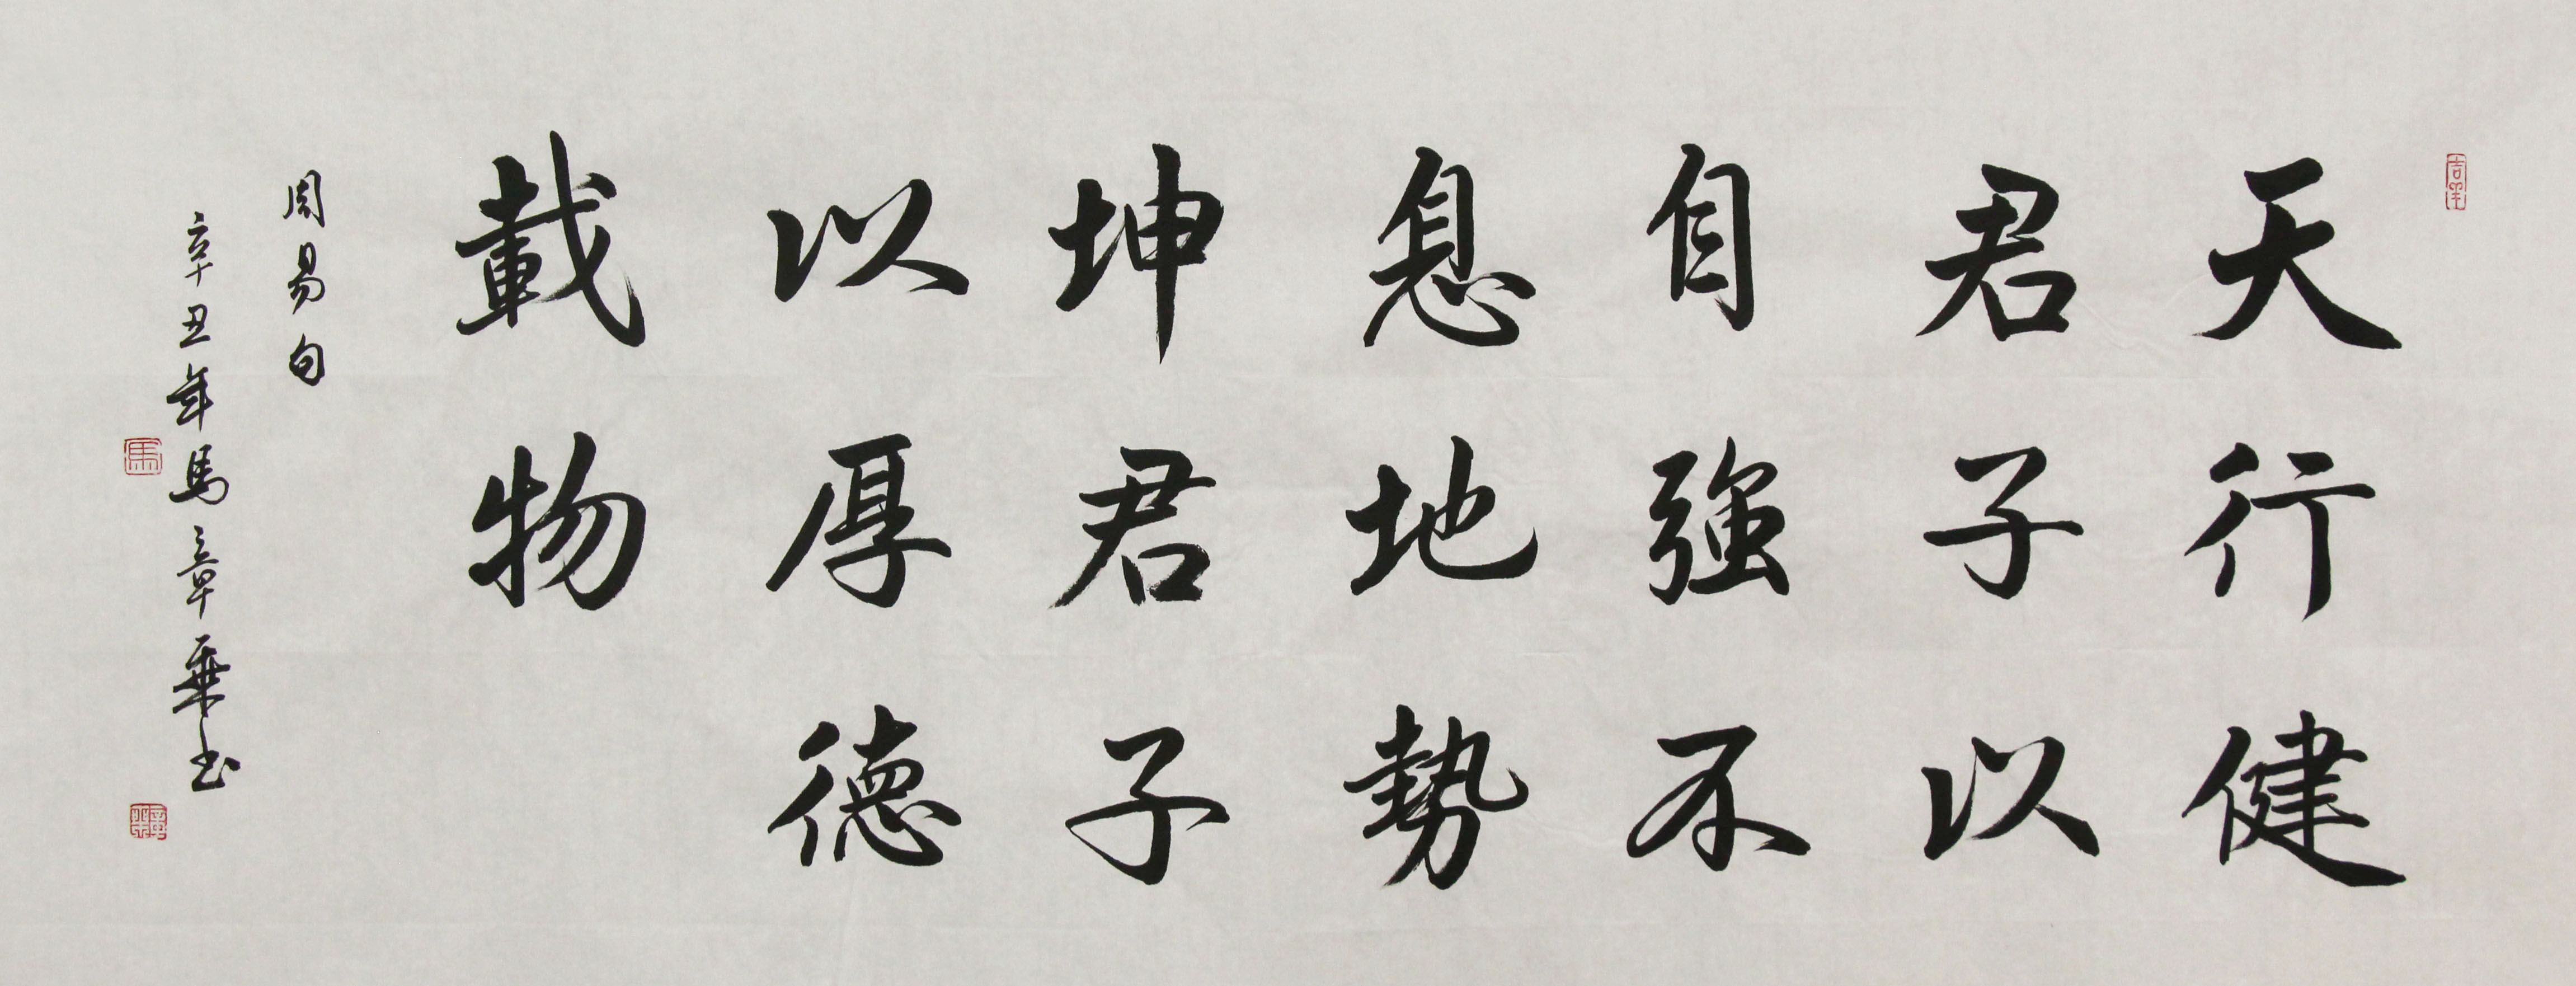 天行健
君子以
自強不
息地勢
坤君子
以厚德
載物
周易句
辛丑年馬章乘书
馬